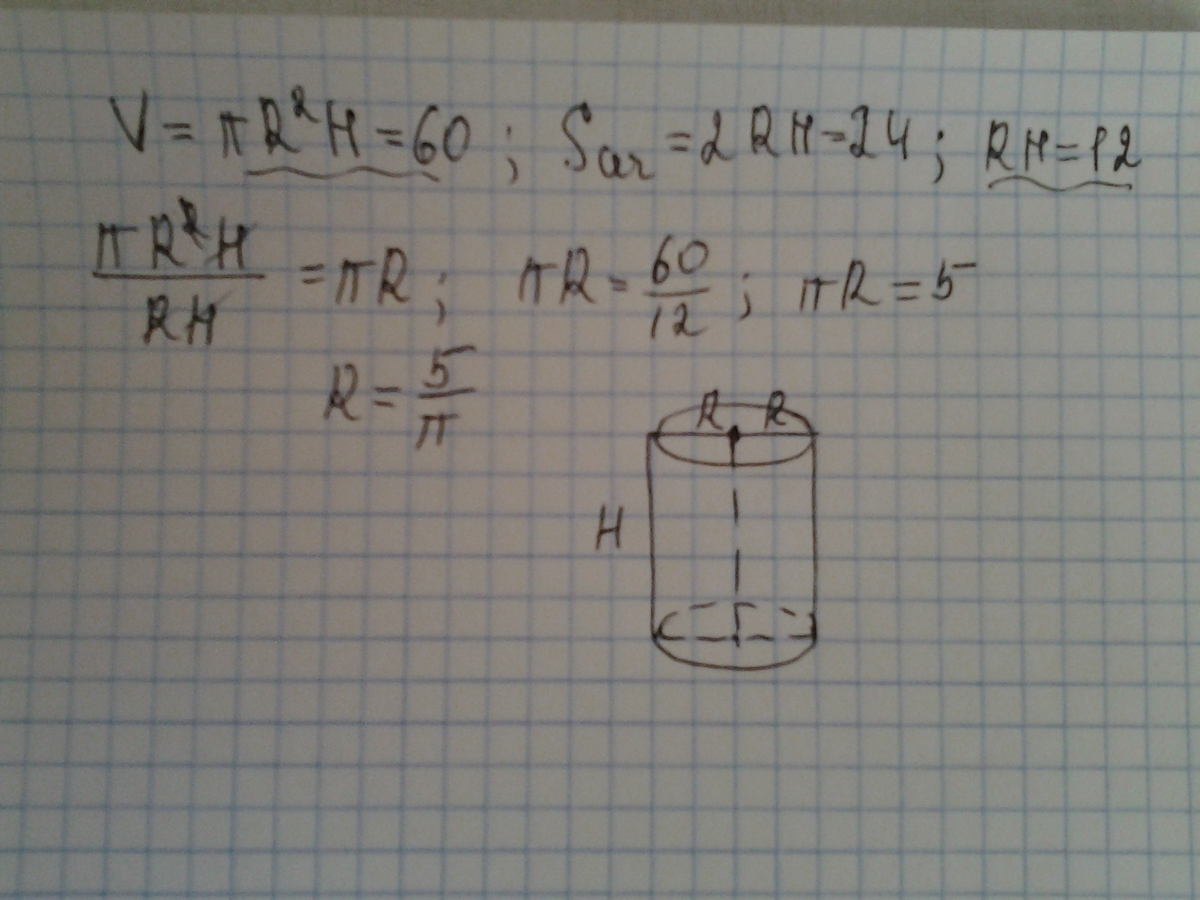 V = πR²H = 60 ; Sсег = 2RH = 24 ; RH = 12
πR²H / RH = πR ; πR = 60/12 ; πR = 5
R = 5/π
R R
H